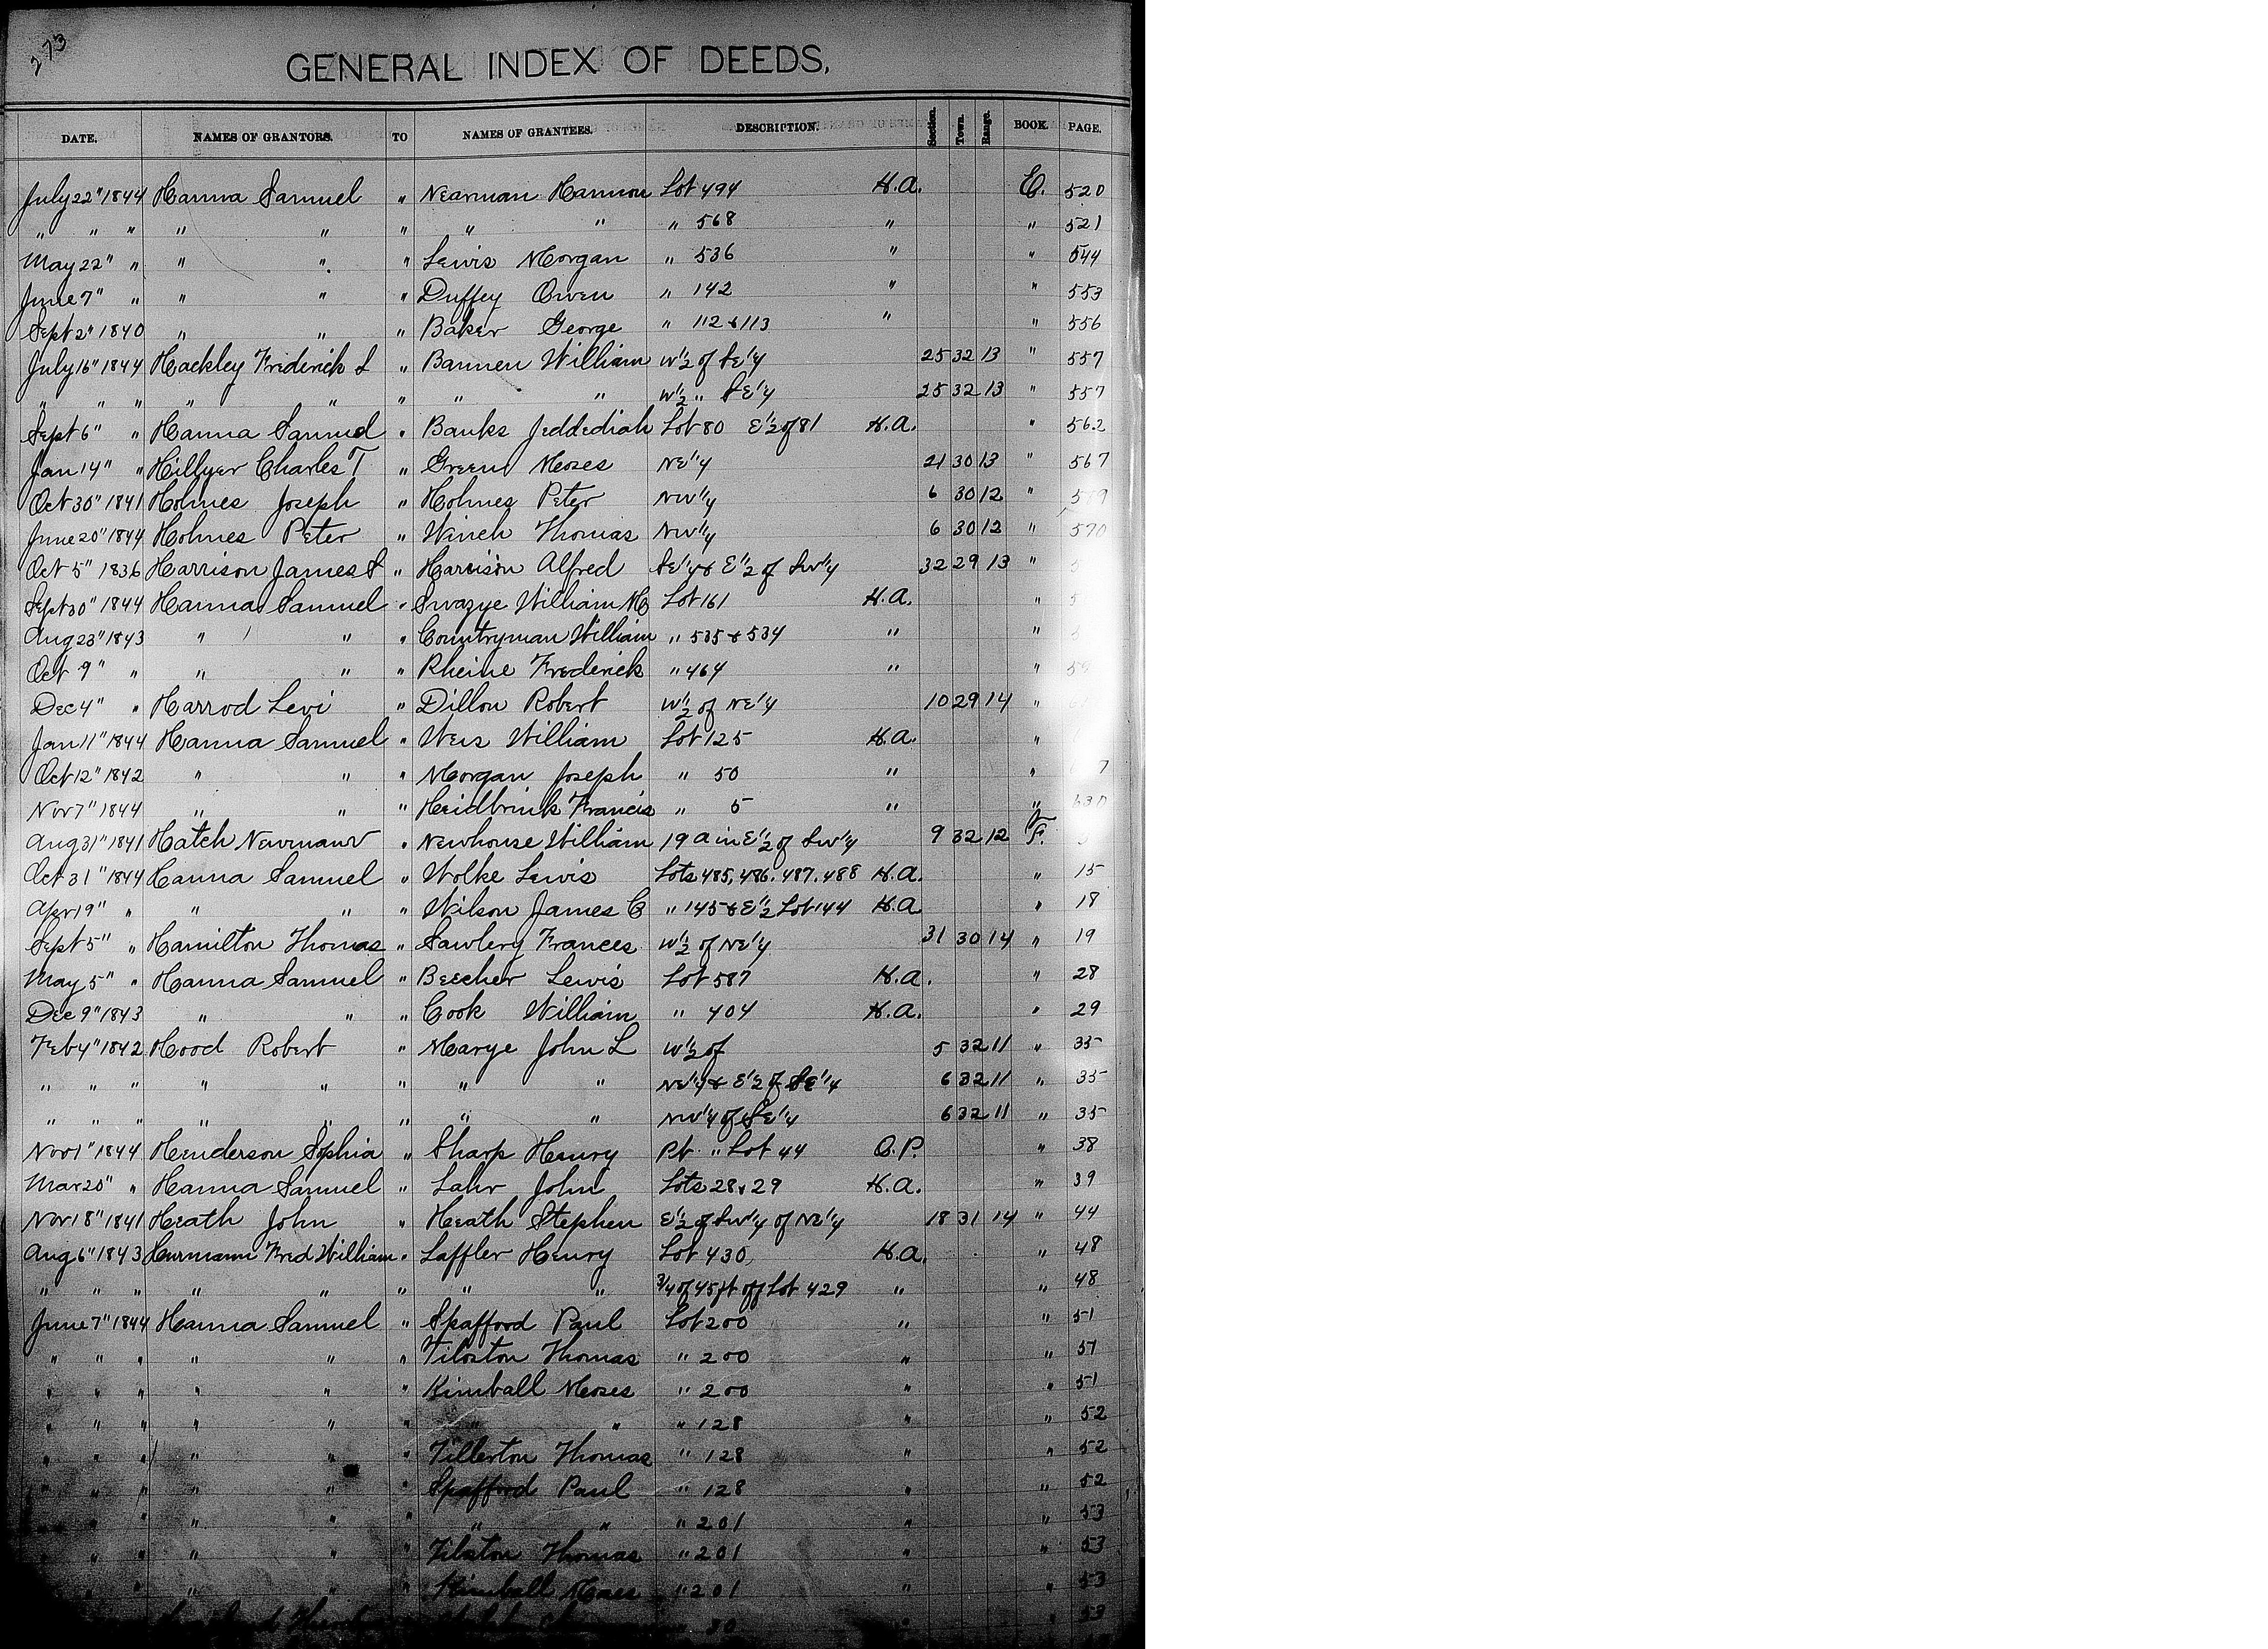 273
GENERAL INDEX OF DEEDS.
DATE. NAMES OF GRANTORS. TO NAMES OF GRANTEES. DESCRIPTION. Section. Town. Range. BOOK. PAGE.
July 22" 1844 Hanna Samuel " Nearman Harmon Lot 494 H.A. E. 520
" " " " " " " " " 568 " " 521
May 22" " " " " Lewis Morgan " 536 " " 544
June 7" " " " " Duffey Owen " 142 " " 553
Sept 2" 1840 " " " Baker George " 112 & 113 " " 556
July 16" 1844 Hackley Frederick L " Bannen William W 1/2 of SE 1/4 25 32 13 " 557
" " " " " " " " W 1/2 " SE 1/4 25 32 13 " 557
Sept 6" " Hanna Samuel " Banks Jeddediah Lot 80 E 1/2 of 81 H.A. " 562
Jan 14" " Hillyer Charles T " Green Moses NE 1/4 21 30 13 " 567
Oct 30" 1841 Holmes Joseph " Holmes Peter NW 1/4 6 30 12 "
June 20" 1844 Holmes Peter " Winch Thomas NW 1/4 6 30 12 " 570
Oct 5" 1836 Harrison James S " Harrison Alfred SE 1/4 & E 1/2 of SW 1/4 32 29 13 "
Sept 30" 1844 Hanna Samuel " Swazye William H Lot 161 H.A. "
Aug 23" 1843 " " " Countryman William " 535 & 534 " "
Oct 9" " " " " Rheine Frederick " 464 " "
Dec 4" " Harrod Levi " Dillon Robert W 1/2 of NE 1/4 10 29 14 "
Jan 11" 1844 Hanna Samuel " Weis William Lot 125 H.A. "
Oct 12" 1842 " " " Morgan Joseph " 50 " "
Nov 7" 1844 " " " Heidbrink Francis " 5 " " 630
Aug 31" 1841 Hatch Newman " Newhouse William 19 a in E 1/2 of SW 1/4 9 32 12 F.
Oct 31" 1844 Hanna Samuel " Wolke Lewis Lots 485, 486. 487. 488 H.A. " 15
Apr 19" " " " " Wilson James C " 145 & E 1/2 Lot 144 H.A " 18
Sept 5" " Hamilton Thomas " Sawlery Frances W 1/2 of NE 1/4 31 30 14 " 19
May 5" " Hanna Samuel " Beecher Lewis Lot 587 H.A. " 28
Dec 9" 1843 " " " Cook William " 404 H.A. " 29
Feb 4" 1842 Hood Robert " Marye John L W 1/2 of 5 32 11 " 35
" " " " " " " " NE 1/4 & E 1/2 of SE 1/4 6 32 11 " 35
" " " " " " " " NW 1/4 of SE 1/4 6 32 11 " 35
Nov 1" 1844 Henderson Sophia " Sharp Henry Pt " Lot 44 O.P. " 38
Mar 20" " Hanna Samuel " Lahr John Lots 28 & 29 H.A. " 39
Nov 18" 1841 Heath John " Heath Stephen E 1/2 of SW 1/4 of NE 1/4 18 31 14 " 44
Aug 6" 1843 Hurmann Fred William " Laffler Henry Lot 430 H.A. " 48
" " " " " " " " 3/4 of 45 ft off Lot 429 " " 48
June 7" 1844 Hanna Samuel " Spafford Paul Lot 200 " " 51
" " " " " " Tilston Thomas " 200 " " 51
" " " " " " Kimball Moses " 200 " " 51
" " " " " " " " " 128 " " 52
" " " " " " Tillerton Thomas " 128 " " 52
" " " " " " Spafford Paul " 128 " " 52
" " " " " " " " " 201 " " 53
" " " " " " Tilston Thomas " 201 " " 53
" " " " " " Kimball Moses " 201 " " 53
80 " 53